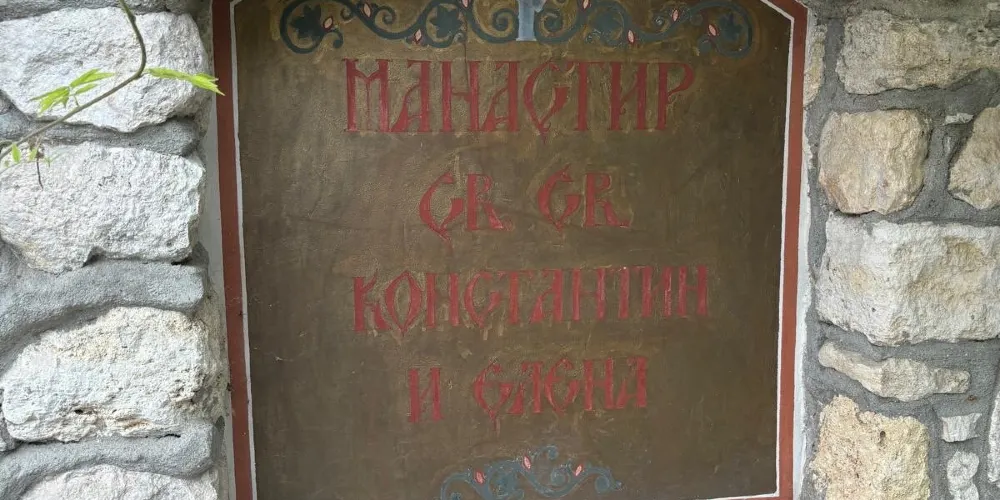 МАНАСТИР
СВ СВ
КОНСТАНТИН
И ЕЛЕНА